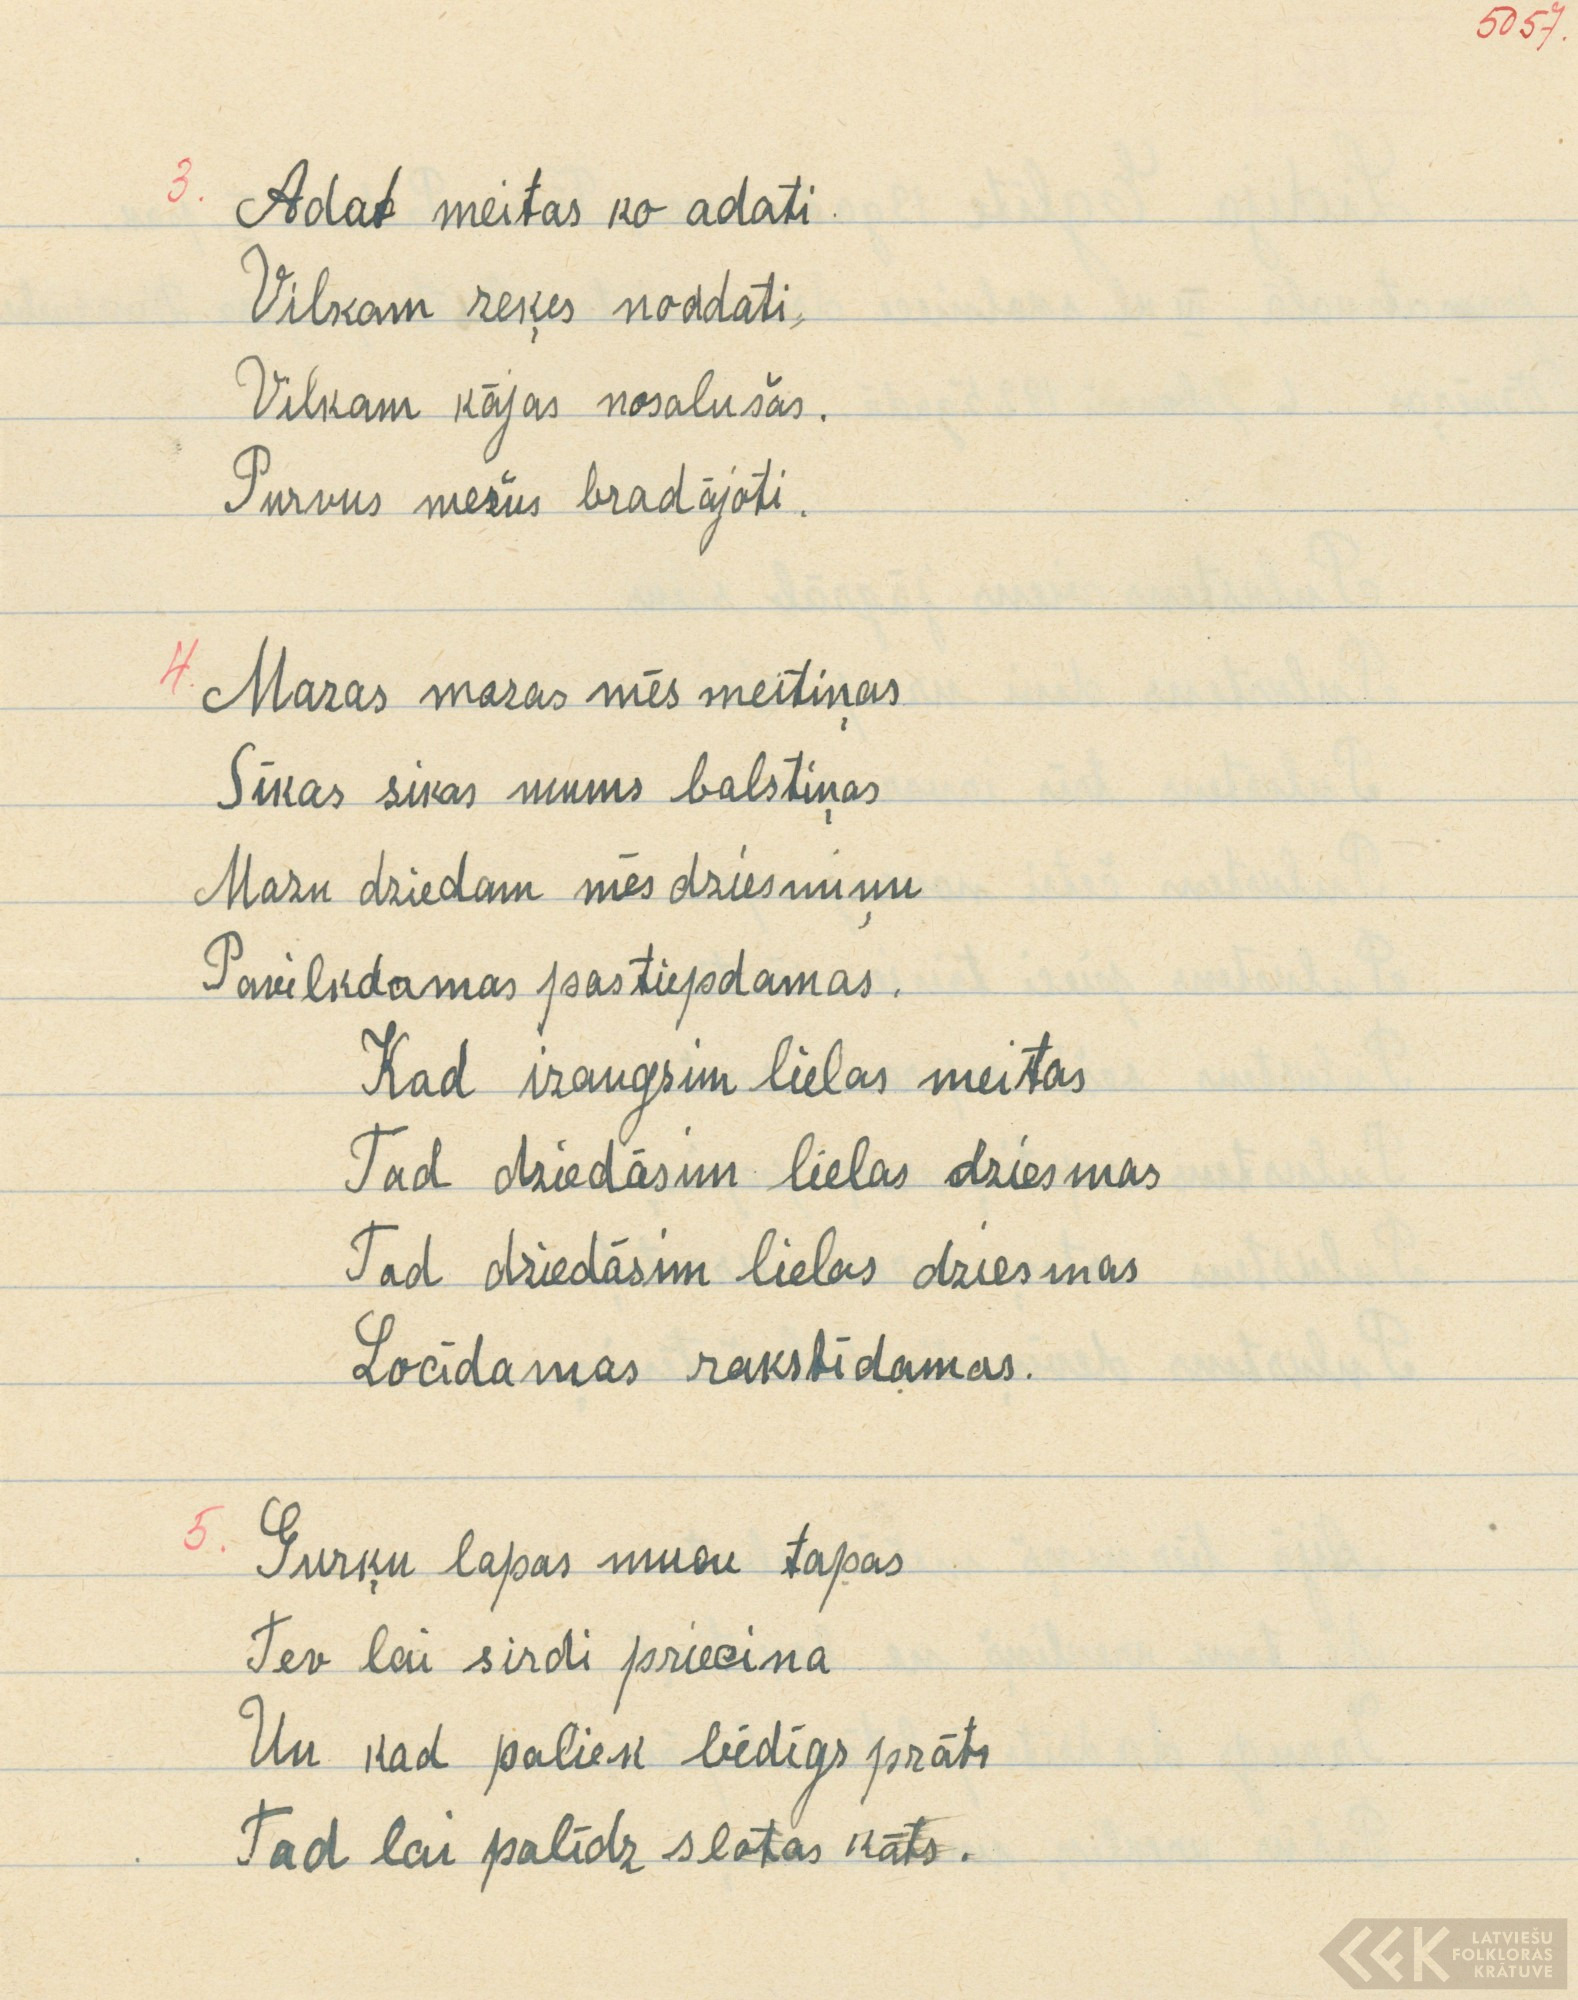 5057.
3. Adat meitas ko adati.
Vilkam zeķes noadati,
Vilkam kājas nosalušās.
Purvus mežus bradājoti.
4. Mazas mazas mēs meitiņas
Sīkas sikas mums balstiņas
Mazu dziedam mēs dziesmiņu
Pavilkdamas pastiepdamas.
Kad izaugsim lielas meitas
Tad dziedāsim lielas dziesmas
Tad dziedāsim lielas dziesmas
Locīdamas rakstīdamas.
5. Gurķu lapas mucu tapas
Tev lai sirdi priecina
Un kad paliek bēdīgs prāts
Tad lai palīdz slotas kāts.
LATVIEŠU
FOLKLORAS
KRĀTUVE